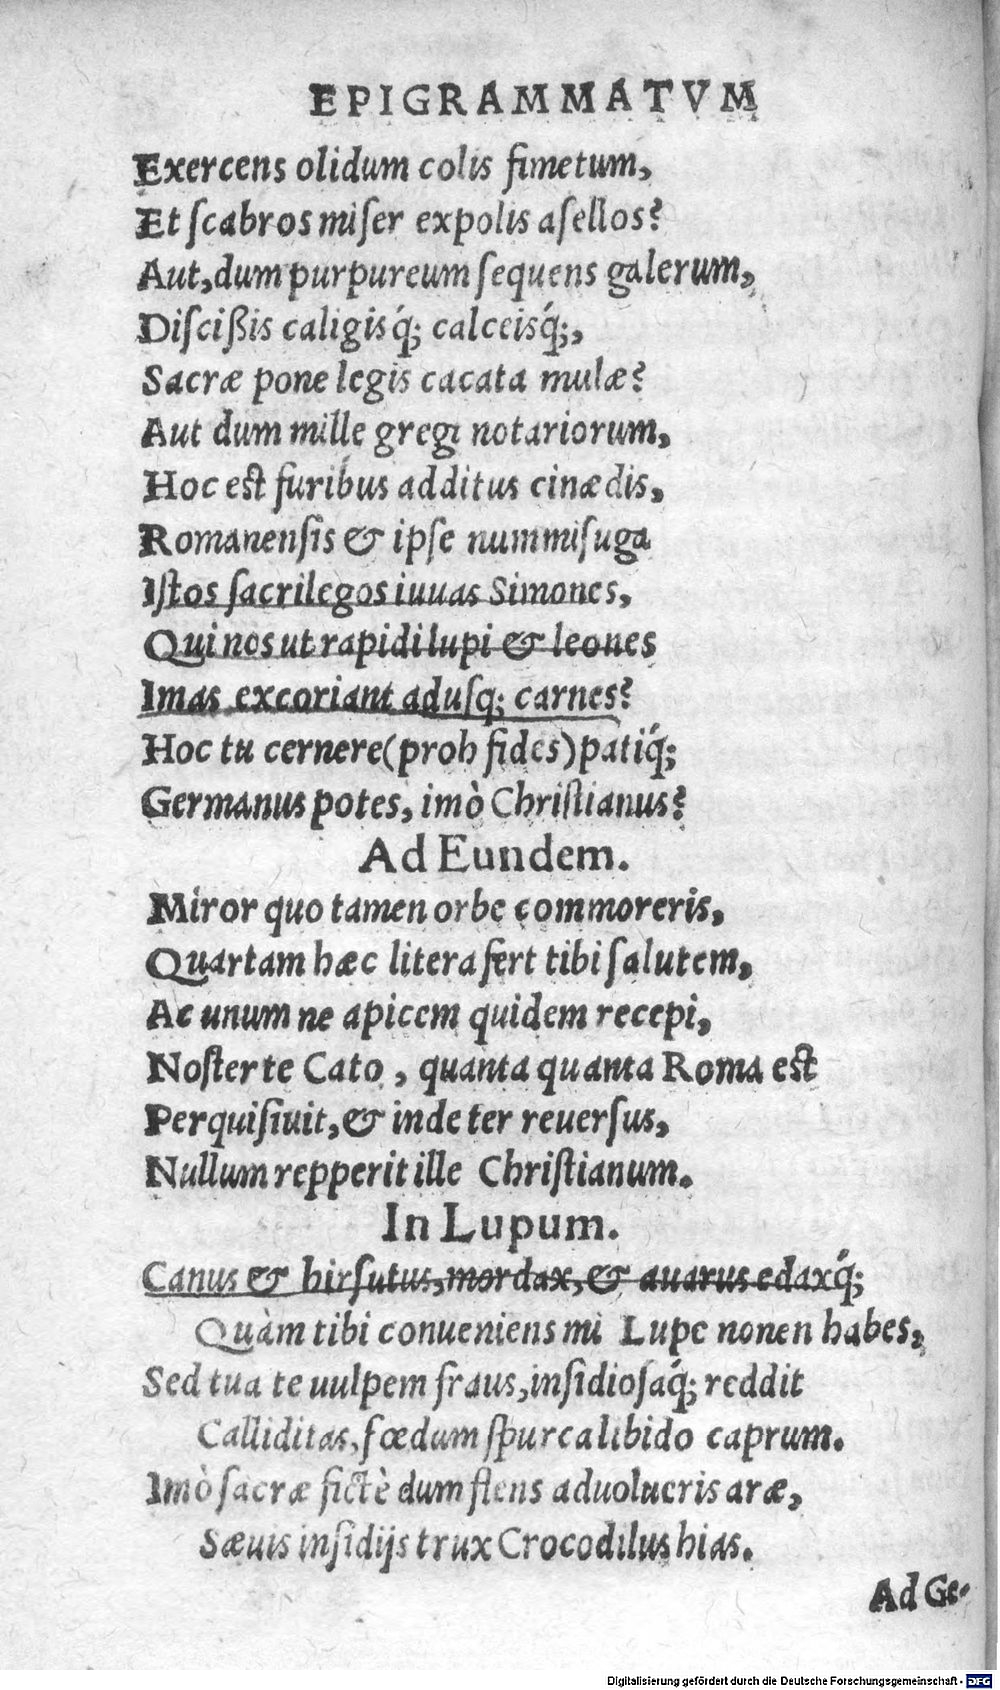 EPIGRAMMATVM
Exercens olidum colis fimetum,
Et ſcabros miſer expolis aſellos?
Aut, dum purpureum ſequens galerum,
Diſciſsis caligisq́; calceisq́;,
Sacræ pone legis cacata mulæ?
Aut dum mille gregi notariorum,
Hoc est furibus additus cinædis,
Romanenſis & ipſe nummiſuga
Iſtos ſacrilegos iuuas Simones,
Qui nos ut rapidi lupi & leones
Imas excoriant aduſq; carnes?
Hoc tu cernere (proh fides) patiq́;
Germanus potes, imò Chriſtianus?
Ad Eundem.
Miror quo tamen orbe commoreris,
Quartam hæc litera fert tibi ſalutem,
Ac unum ne apicem quidem recepi,
Noſter te Cato, quanta quanta Roma est
Perquiſiuit, & inde ter reuerſus,
Nullum repperit ille Chriſtianum.
In Lupum.
Canus & hirſutus, mordax, & auarus edaxq́;
Quàm tibi conueniens mi Lupe nonen habes,
Sed tua te uulpem fraus, inſidioſaq́; reddit
Calliditas, fœdum ſpurca libido caprum.
Imò ſacræ fictè dum flens aduolueris aræ,
Sæuis inſidijs trux Crocodilus hias.
Ad Ge-
Digitalisierung gefördert durch die Deutsche Forschungsgemeinschaft - DFG